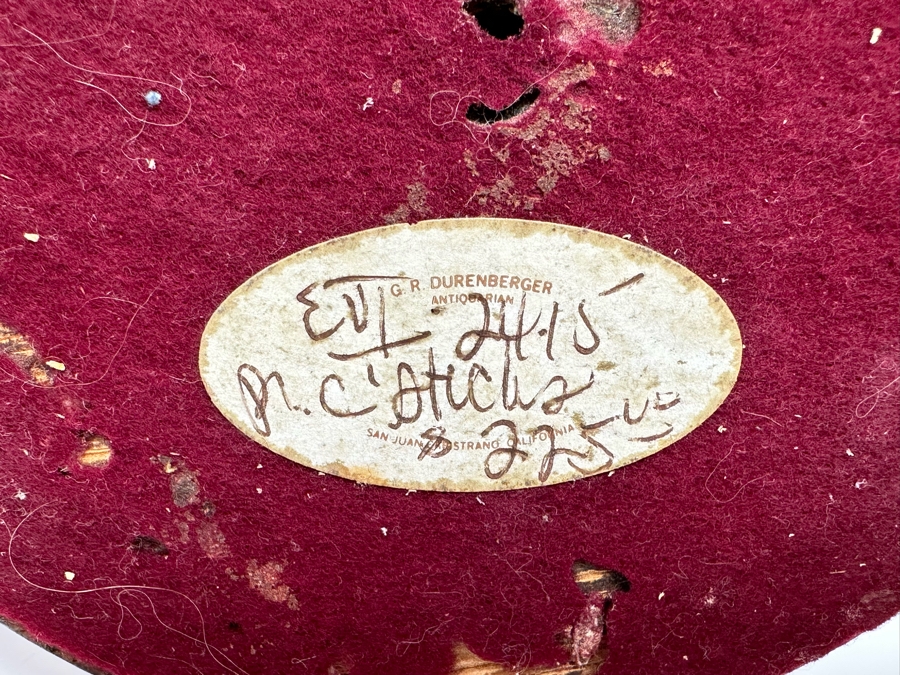 G. R. DURENBERGER
ANTIQUARIAN
EVI. 2415
Pr. C'Sticks
SAN JUAN CAPISTRANO, CALIFORNIA
$ 225.00